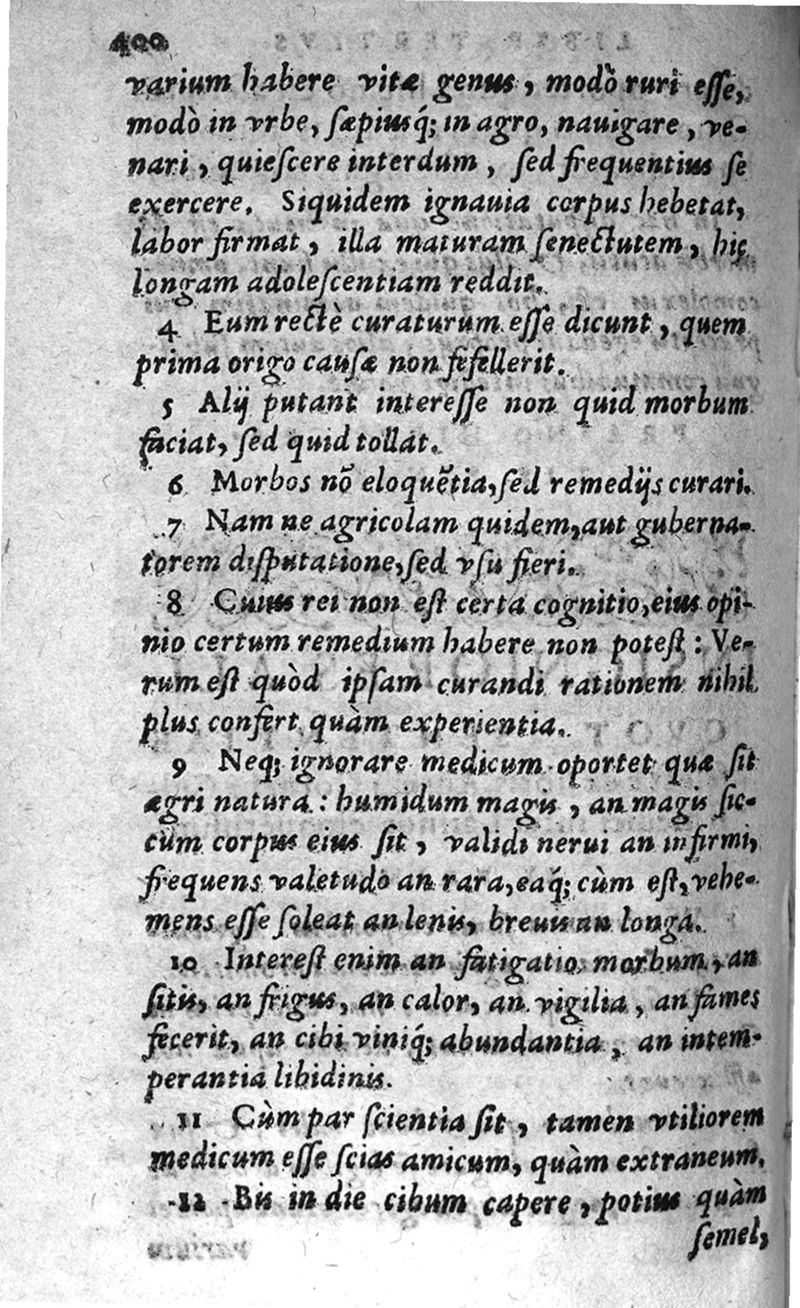 400
varium habere vitæ genus, modò ruri eſſe,
modò in vrbe, ſæpiuſq́; in agro, nauigare, ve-
nari, quieſcere interdum, ſed frequentius ſe
exercere. Siquidem ignauia corpus hebetat,
labor firmat, illa maturam ſenectutem, hic
longam adoleſcentiam reddit.
4 Eum rectè curaturum eſſe dicunt, quem
prima origo cauſæ non fefellerit.
5 Alij putant intereſſe non quid morbum
faciat, ſed quid tollat.
6 Morbos nō eloquētia, ſed remedijs curari.
7 Nam ne agricolam quidem, aut guberna-
torem diſputatione, ſed vſu fieri.
8 Cuius rei non eſt certa cognitio, eius opi-
nio certum remedium habere non poteſt: Ve-
rum eſt quòd ipſam curandi rationem nihil
plus confert quàm experientia.
9 Neq; ignorare medicum oportet quæ ſit
ægri natura: humidum magis, an magis ſic-
cum corpus eius ſit, validi nerui an infirmi,
frequens valetudo an rara, eaq́; cùm eſt, vehe-
mens eſſe ſoleat an lenis, breuis an longa.
10 Intereſt enim an fatigatio morbum, an
ſitis, an frigus, an calor, an vigilia, an fames
fecerit, an cibi viniq́; abundantia, an intem-
perantia libidinis.
11 Cùm par ſcientia ſit, tamen vtiliorem
medicum eſſe ſcias amicum, quàm extraneum.
12 Bis in die cibum capere, potius quàm
ſemel,